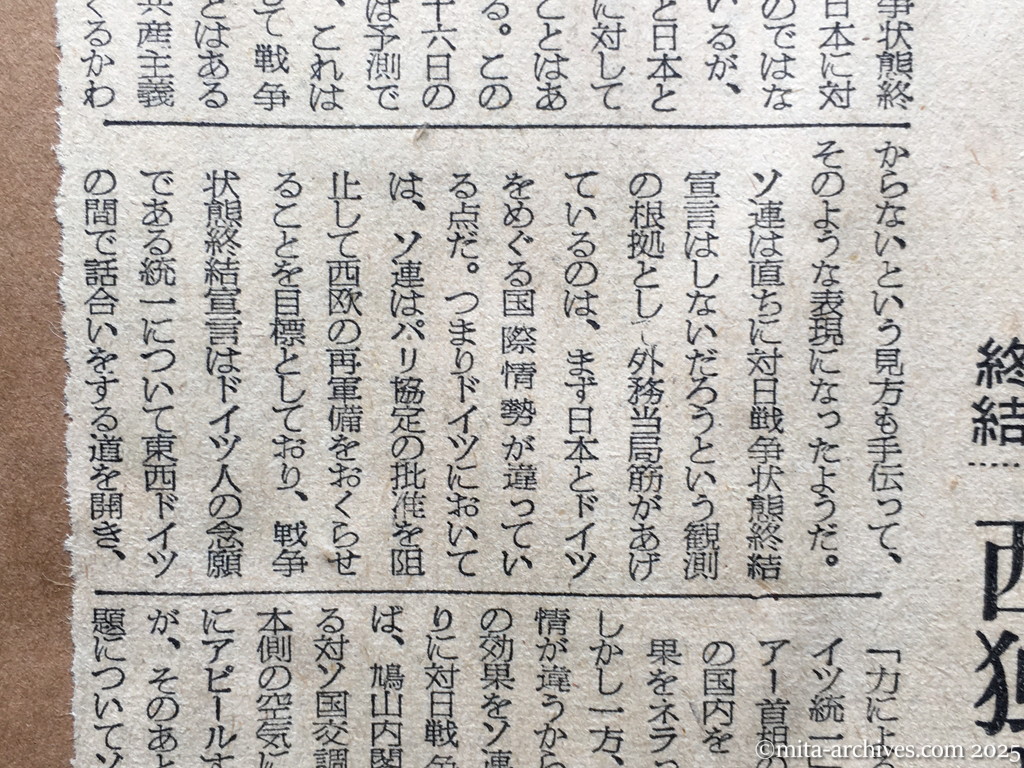 終結……
西独
争状態終
日本に対
のではな
いるが、
と日本と
に対して
ことはあ
る。この
十六日の
は予測で
、これは
て戦争
とはある
共産主義
くるかわ
からないという見方も手伝って、
そのような表現になったようだ。
ソ連は直ちに対日戦争状態終結
宣言はしないだろうという観測
の根拠として外務当局筋があげ
ているのは、まず日本とドイツ
をめぐる国際情勢が違ってい
る点だ。つまりドイツにおいて
は、ソ連はパリ協定の批准を阻
止して西欧の再軍備をおくらせ
ることを目標としており、戦争
状態終結宣言はドイツ人の念願
である統一について東西ドイツ
の間で話合いをする道を開き、
「力によ
イツ統一
アー首相の
の国内を
果をネラっ
しかし一方、
情が違うから
の効果をソ連
りに対日戦争
ば、鳩山内閣
る対ソ国交調
本側の空気に
にアピールす
が、そのあと
題についてソ
©mita-archives.com 2025